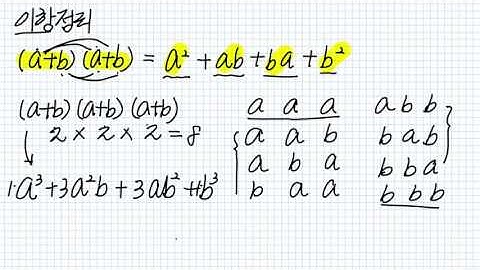 이항정리
(a+b)(a+b) = a² + ab + ba + b²
(a+b)(a+b)(a+b)
2 × 2 × 2 = 8
1·a³+3a²b+3ab²+1b³
a a a
a a b
a b a
b a a
a b b
b a b
b b a
b b b